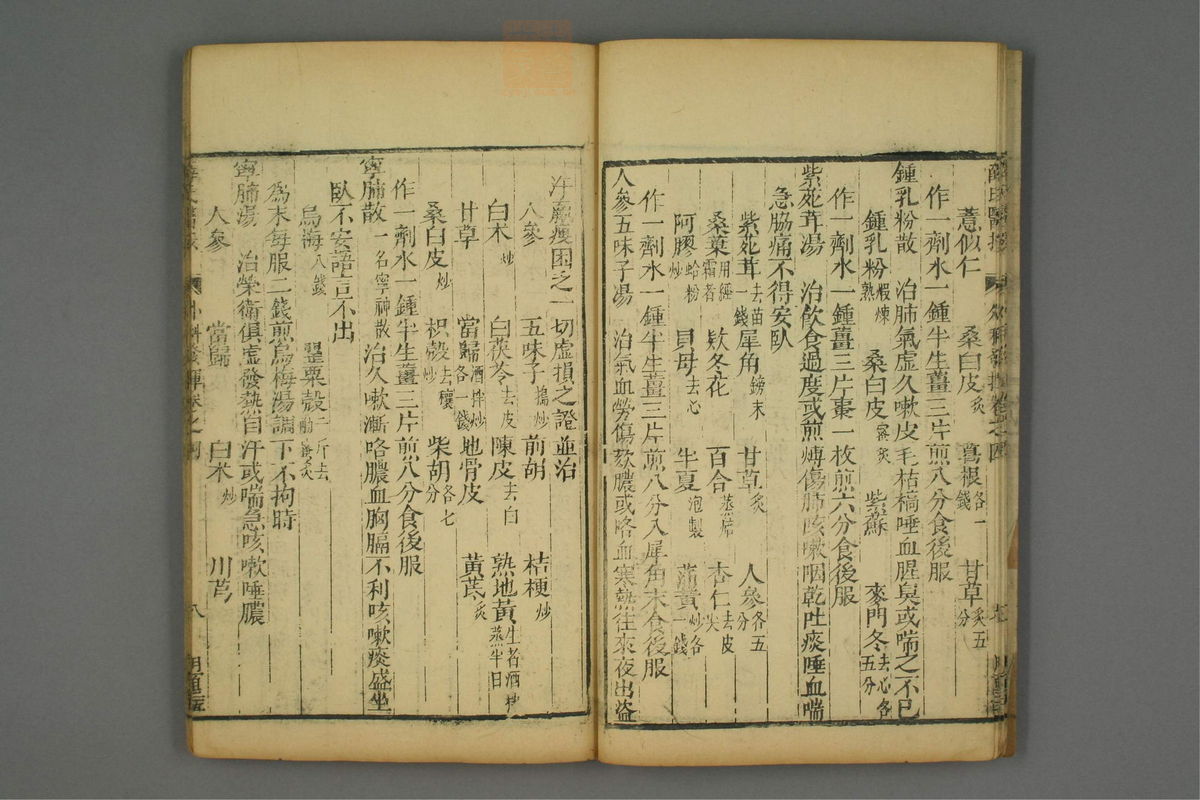 薏苡仁 桑白皮炙 葛根各一錢 甘草炙五分
作一劑水一鍾半生薑三片煎八分食後服
鍾乳粉散 治肺氣虛久嗽皮毛枯槁唾血腥臭或喘之不已
鍾乳粉煅煉熟 桑白皮蜜炙 紫蘇 麥門冬去心各五分
作一劑水一鍾薑三片棗一枚煎六分食後服
紫菀茸湯 治飲食過度或煎煿傷肺咳嗽咽乾吐痰唾血喘
急脇痛不得安臥
紫菀茸去苗一錢 犀角鎊末 甘草炙 人參各五分
桑葉用經霜者 款冬花 百合蒸焙 杏仁去皮尖
阿膠蛤粉炒 貝母去心 半夏泡製 蒲黃炒各一錢
作一劑水一鍾半生薑三片煎八分入犀角末食後服
人參五味子湯 治氣血勞傷欬膿或咯血寒熱往來夜出盜
汗羸瘦困乏一切虛損之證並治
人參 五味子搗炒 前胡 桔梗炒
白朮炒 白茯苓去皮 陳皮去白 熟地黃生者酒炒蒸半日
甘草 當歸酒拌炒各一錢 地骨皮 黃芪炙
桑白皮炒 枳殼去穰炒 柴胡各七分
作一劑水一鍾半生薑三片煎八分食後服
寧肺散一名寧神散 治久嗽漸咯膿血胸膈不利咳嗽痰盛坐
臥不安語言不出
烏梅八錢 罌粟殼一斤去
爲末每服二錢煎烏梅湯調下不拘時
寧肺湯 治榮衛俱虛發熱自汗或喘急咳嗽唾膿
人參 當歸 白朮炒 川芎